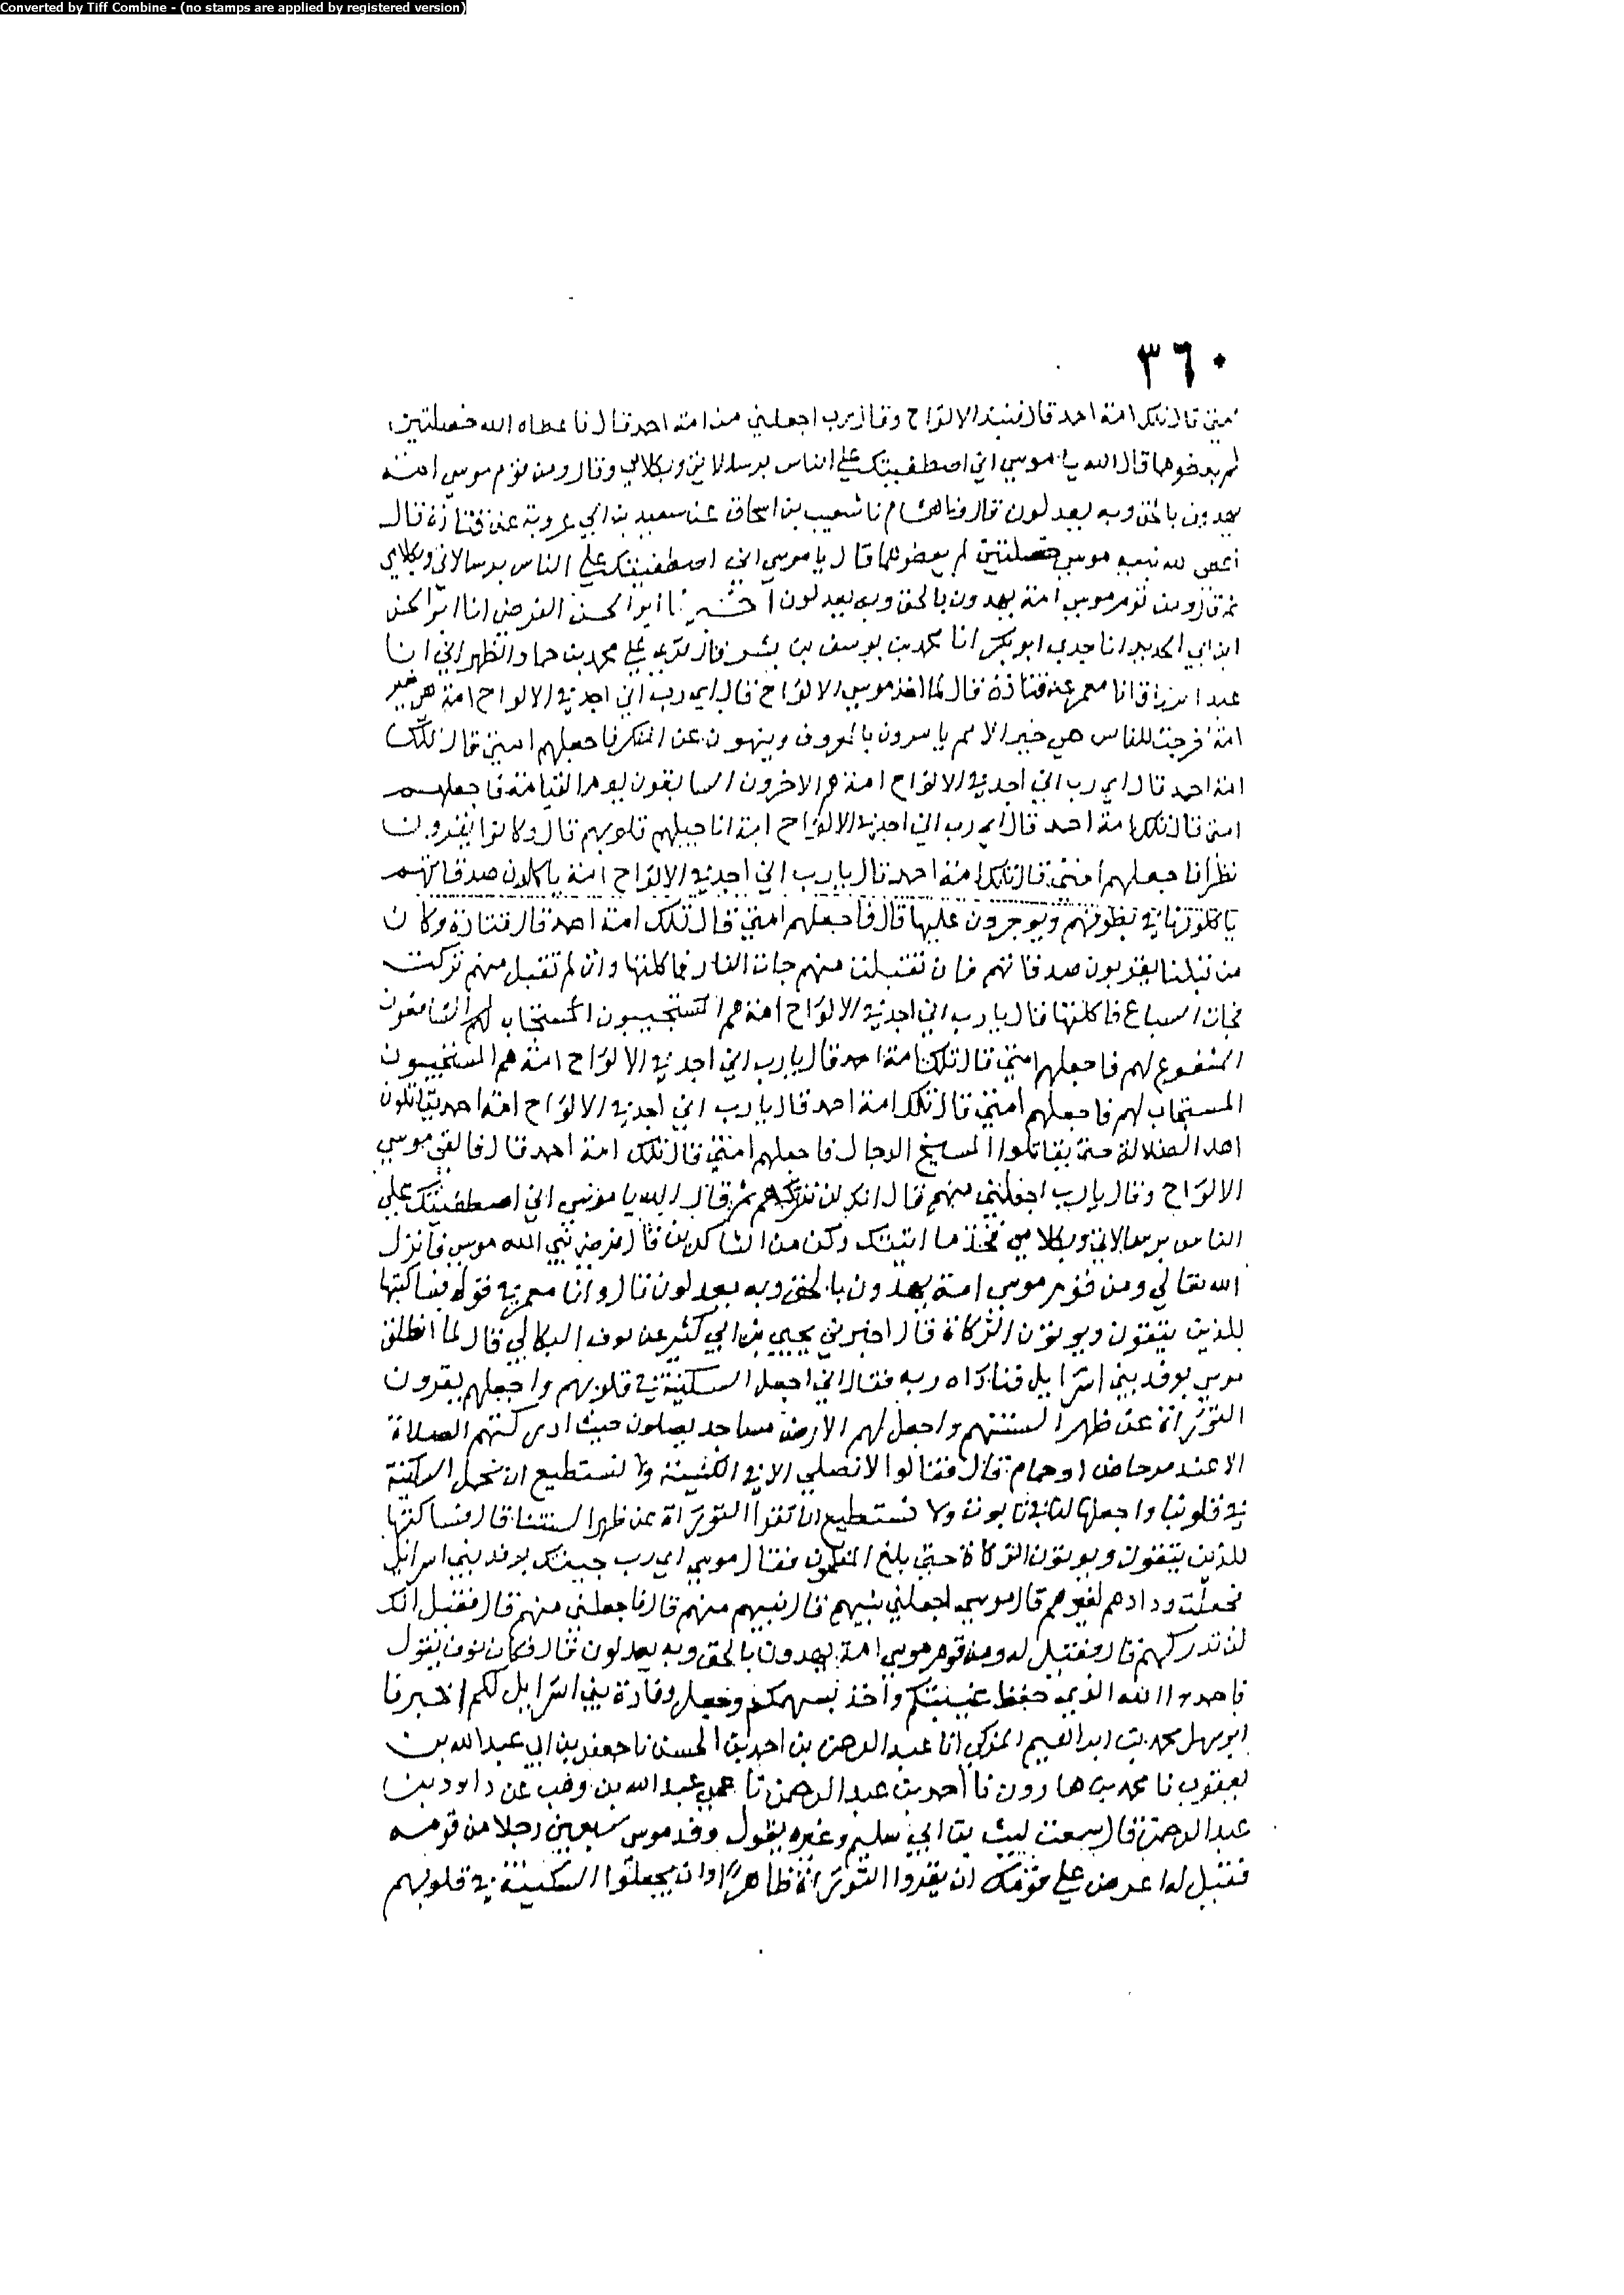 Converted by Tiff Combine - (no stamps are applied by registered version)
٣٦٠
امتي قال تلك امة احمد قال فنبذ الالواح وقال رب اجعلني من امة احمد قال فاعطاه الله خصلتين
لم يعطوهما قال الله يا موسي اني اصطفيتك علي الناس برسالاتي وبكلامي وقال ومن قوم موسي امة
يهدون بالحق وبه يعدلون قال ونا هشام نا شعيب بن اسحاق عن سعيد بن ابي عروبة عن قتادة قال
نبيه موسي خصلتين لم يعطوهما قال يا موسي اني اصطفيتك علي الناس برسالاتي وبكلامي
ثم قال ومن قوم موسي امة يهدون بالحق وبه يعدلون اخبرنا ابو الحسن الفرضي انا ابو الحسن
ابن ابي الحديد انا جدي ابو بكر انا محمد بن يوسف بن بشر قال قري علي محمد بن حماد الظهراني انا
عبد الرزاق انا معمر عن قتادة قال لما اخذ موسي الالواح قال اي رب اني اجد في الالواح امة هي خير
امة اخرجت للناس هي خير الامم يامرون بالمعروف وينهون عن المنكر فاجعلهم امتي قال تلك
امة احمد قال اي رب اني اجد في الالواح امة هم الاخرون السابقون يوم القيامة فاجعلهم
امتي قال تلك امة احمد قال اي رب اني اجد في الالواح امة اناجيلهم قلوبهم قال وكانوا يقرون
نظرا فاجعلهم امتي قال تلك امة احمد قال يا رب اني اجد في الالواح امة ياكلون صدقاتهم
ياكلونها في بطونهم ويوجرون عليها قال فاجعلهم امتي قال تلك امة احمد قال قتادة وكان
من قبلنا يقربون صدقاتهم فان تقبلت منهم جات النار فاكلتها وان لم تقبل منهم تركت
فجات السباع فاكلتها قال يا رب اني اجد في الالواح امة هم المستجيبون المستجاب لهم الشافعون
المشفوع لهم فاجعلهم امتي قال تلك امة احمد قال يا رب اني اجد في الالواح امة هم المستجيبون
المستجاب لهم فاجعلهم امتي قال تلك امة احمد قال يا رب اني اجد في الالواح امة احمد يقاتلون
اهل الضلالة حتي يقاتلوا المسيخ الدجال فاجعلهم امتي قال تلك امة احمد قال فالقي موسي
الالواح وقال يا رب اجعلني منهم قال انك لن تدركهم ثم قال الله يا موسي اني اصطفيتك علي
الناس برسالاتي وبكلامي فخذ ما اتيتك وكن من الشاكرين قال فرضي نبي الله موسي فانزل
الله تعالي ومن قوم موسي امة يهدون بالحق وبه يعدلون قال وانا معمر في قوله فساكتبها
للذين يتقون ويوتون الزكاة قال اخبرني يحيي بن ابي كثير عن نوف البكالي قال لما انطلق
موسي بوفد بني اسرايل فناداه ربه فقال اني اجعل السكينة في قلوبهم واجعلهم يقرون
التوراة عن ظهر السنتهم واجعل لهم الارض مساجد يصلون حيث ادركتهم الصلاة
الا عند مرحاض او حمام قال فقالوا لا نصلي الا في الكنيسة ولا نستطيع ان نحمل السكينة
في قلوبنا واجعلها لنا في تابوت ولا نستطيع ان نقرا التوراة عن ظهر السنتنا قال فساكتبها
للذين يتقون ويوتون الزكاة حتي بلغ المفلحون فقال موسي اي رب جيتك بوفد بني اسرايل
فجعلت وفادهم لغيرهم قال موسي اجعلني نبيهم قال نبيهم منهم قال فاجعلني منهم قال فقيل انك
لن تدركهم قال فقيل له ومن قوم موسي امة يهدون بالحق وبه يعدلون قال فكان نوف يقول
فاحمدوا الله الذي حفظ غيبتكم واخذ بسهمكم وجعل وفادة بني اسرايل لكم اخبرنا
ابو سهل محمد بن ابراهيم المزكي انا عبد الرحمن بن احمد بن الحسن نا جعفر بن ابي عبد الله بن
يعقوب نا محمد بن هارون نا احمد بن عبد الرحمن نا عمي عبد الله بن وهب عن داود بن
عبد الرحمن قال سمعت ليث بن ابي سليم وغيره يقول وفد موسي سبعين رجلا من قومه
فقيل له اعرض علي قومك ان يقروا التوراة ظاهرا وان يجعلوا السكينة في قلوبهم